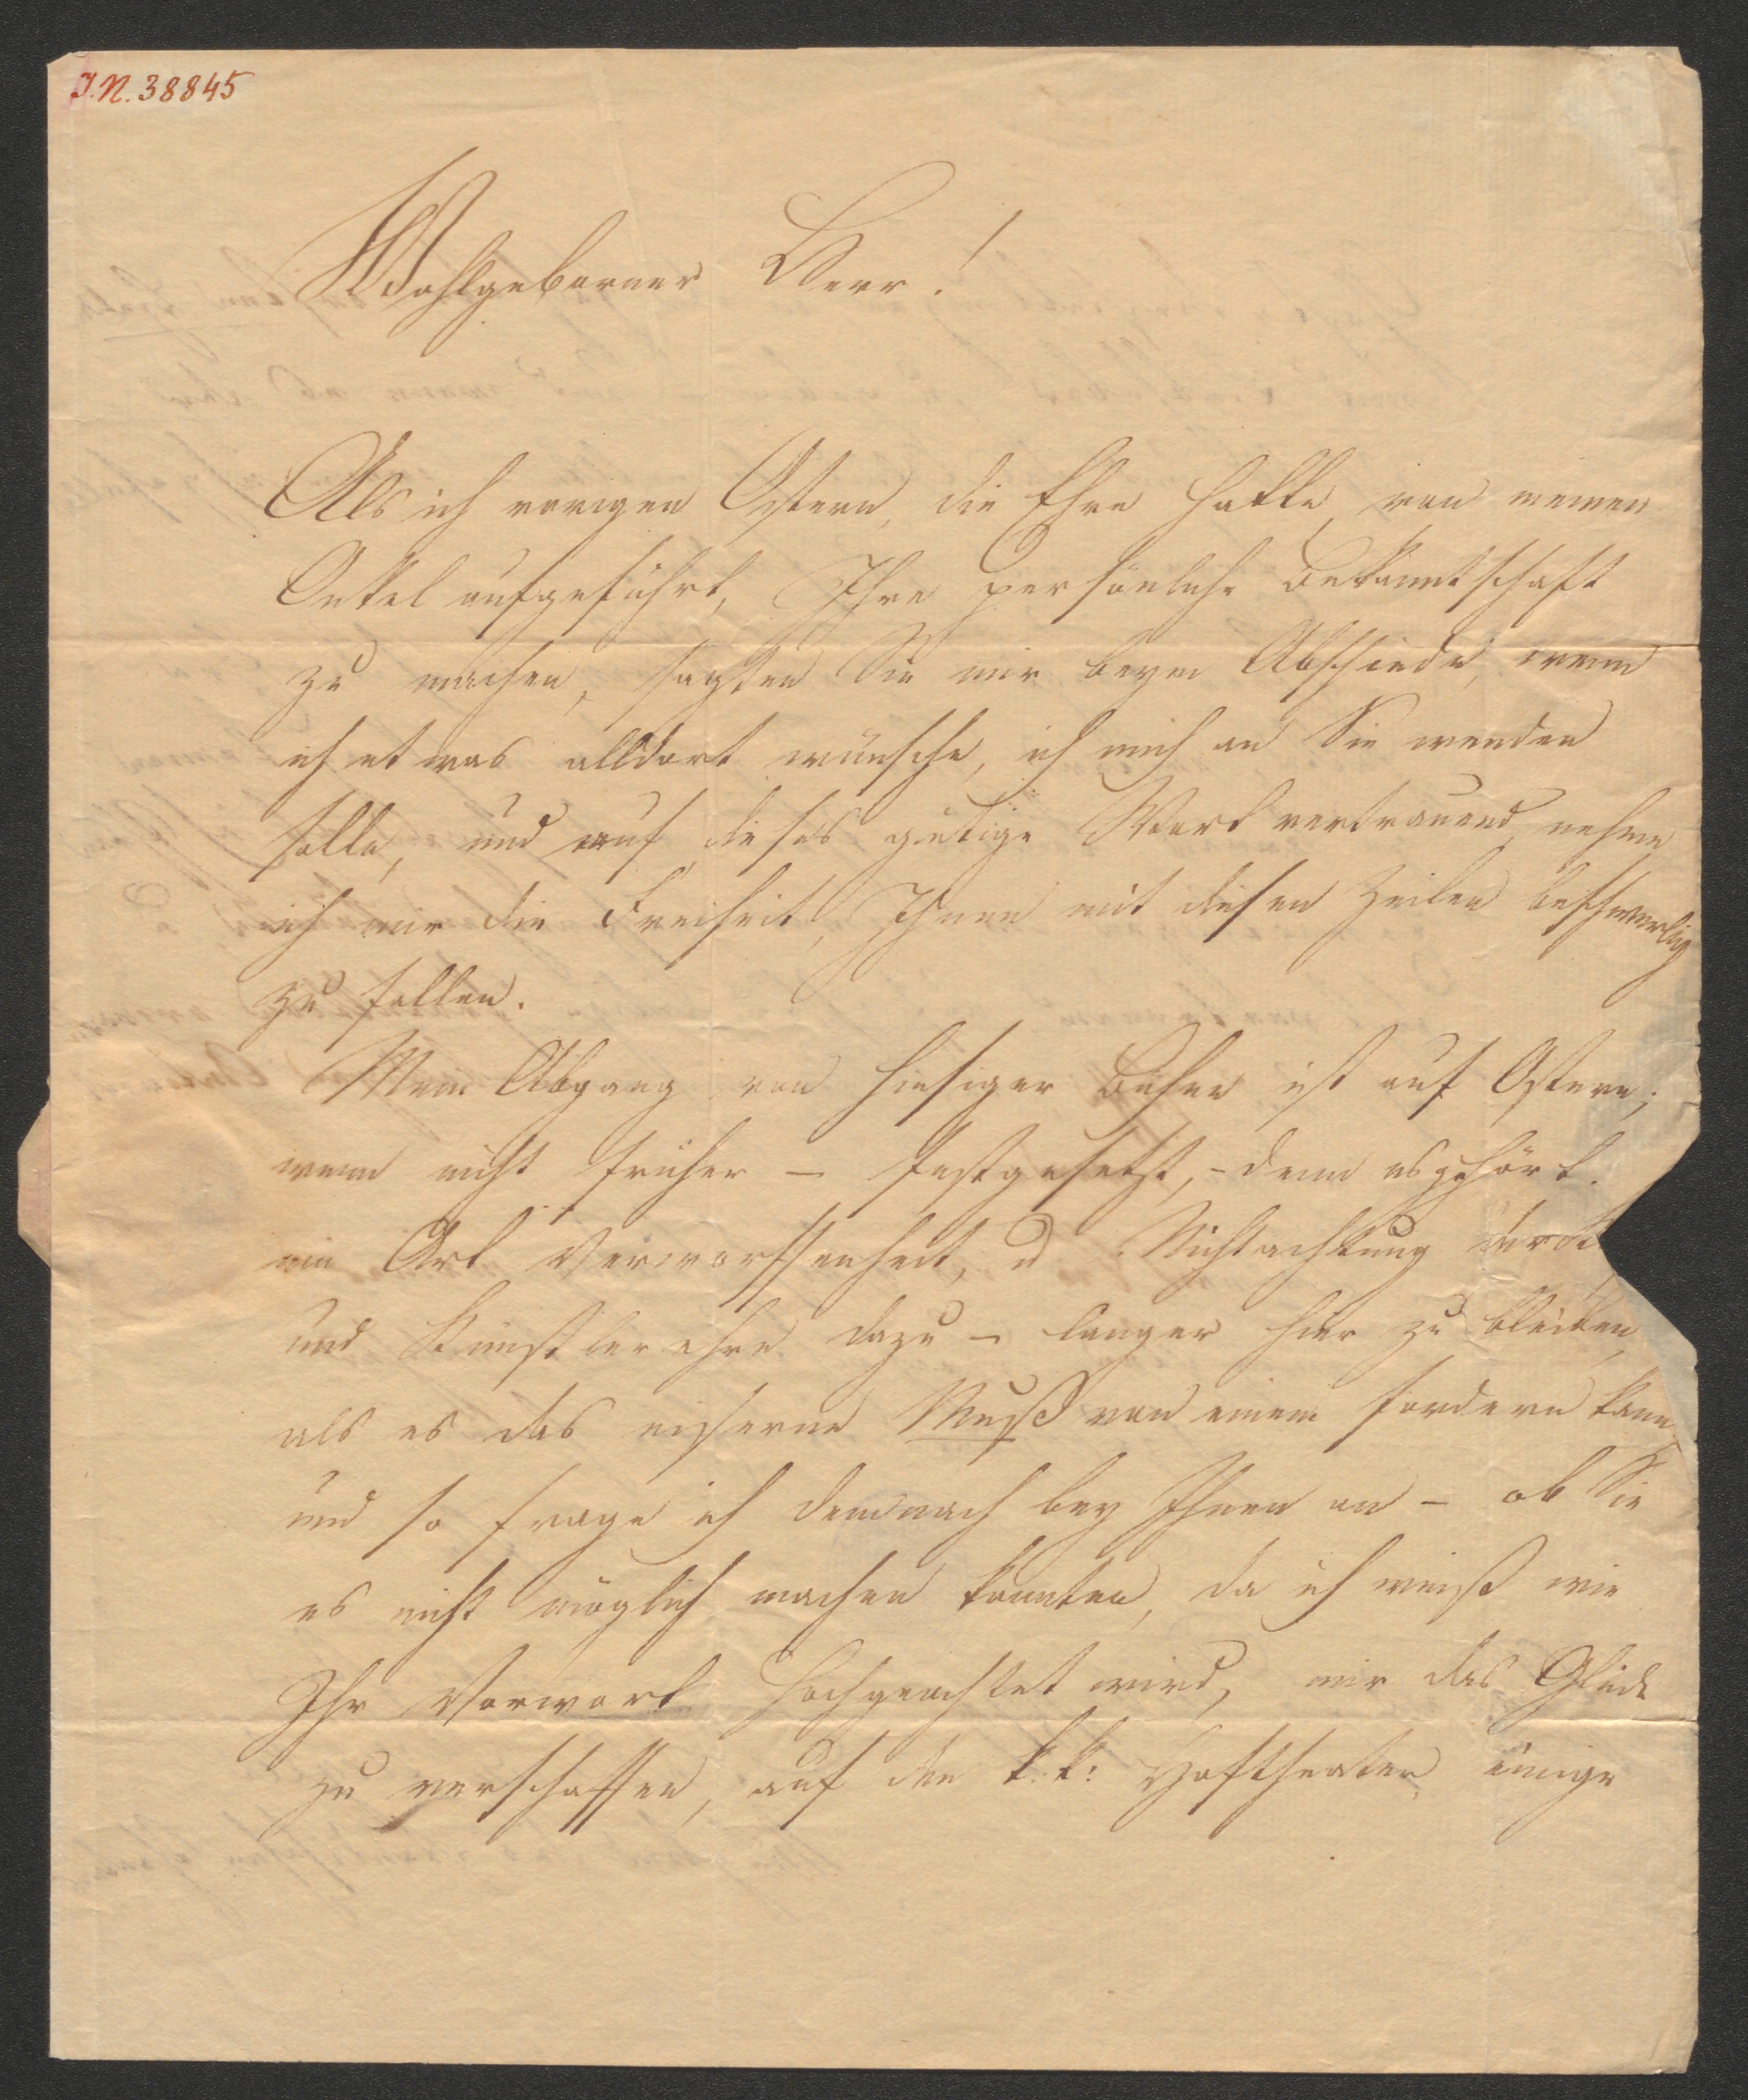 I.N. 38845
Wohlgeborner Herr!
Als ich vorigen Ostern, die Ehre hatte, von meinen
Onkel aufgeführt, Ihre persönliche Bekanntschaft
zu machen, sagten Sie mir beym Abschiede, wenn
ich etwas alldort wünsche, ich mich an Sie wenden
solle, und auf dieses gütige Wort vertrauend, nehme
ich mir die Freiheit, Ihnen mit diesen Zeilen beschwerlig
zu fallen.
Mein Abgang von hiesiger Bühne ist auf Ostern;
wenn nicht früher – festgesetzt, – denn es gehört
ein Art Verworffenheit, u Nichtachtung der
und Künstlerehre dazu – langer hier zu bleiben,
als es das eiserne Muß von einem fordern kann
und so frage ich demnach bey Ihnen an – ob Sie
es nicht möglich machen konnten, da ich weiß wie
Ihr Vorwort hochgeachtet wird, mir das Glück
zu verschaffen, auf den k. k: Hoftheater einige